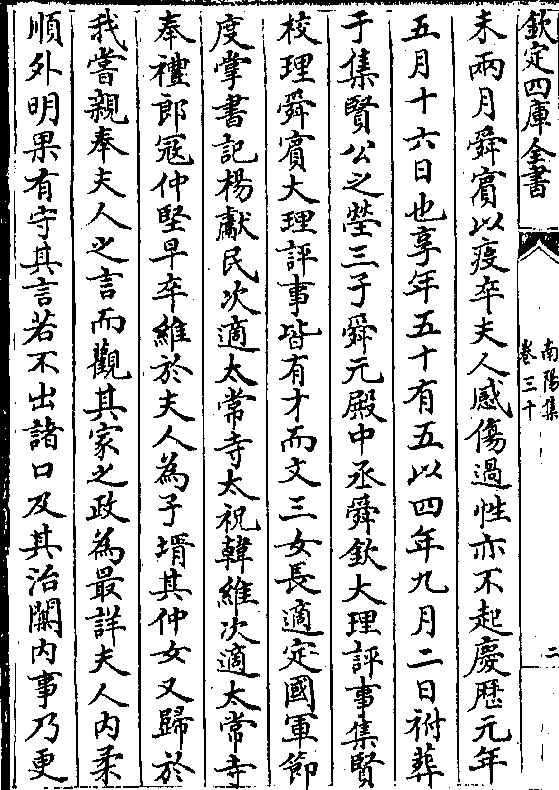 欽定四庫全書
南陽集
卷三十
二
未兩月舜賔以疫卒夫人感傷過性亦不起慶歴元年
五月十六日也享年五十有五以四年九月二日祔葬
于集賢公之塋三子舜元殿中丞舜欽大理評事集賢
校理舜賔大理評事皆有才而文三女長適定國軍節
度掌書記楊獻民次適太常寺太祝韓維次適太常寺
奉禮郎冦仲堅早卒維於夫人為子壻其仲女又歸於
我嘗親奉夫人之言而觀其家之政為最詳夫人内柔
順外明果有守其言若不出諸口及其治闗内事乃更